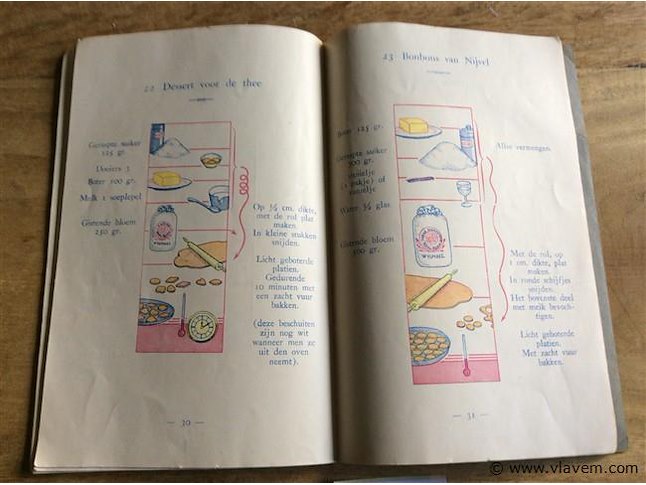 22 Dessert voor de thee
Geraspte suiker
125 gr.
Dooiers :3
Boter 100 gr.
Melk 1 soeplepel
Gistende bloem
250 gr.
Op ½ cm. dikte,
met de rol plat
maken.
In kleine stukken
snijden.
Licht geboterde
platien.
Gedurende
10 minuten met
een zacht vuur
bakken.
(deze beschuiten
zijn nog wit
wanneer men ze
uit den oven
neemt).
— 30 —
23 Bonbons van Nijvel
Boter 125 gr.
Geraspte suiker
300 gr.
(1 pakje) of
Water ¾ glas
Gistende bloem
500 gr.
Alles vermengen.
Met de rol, op
1 cm. dikte, plat
maken.
In ronde schijfjes
snijden.
Het bovenste deel
met melk bevoch-
tigen.
Licht geboterde
platien.
Met zacht vuur
bakken.
— 31 —
© www.vlavem.com